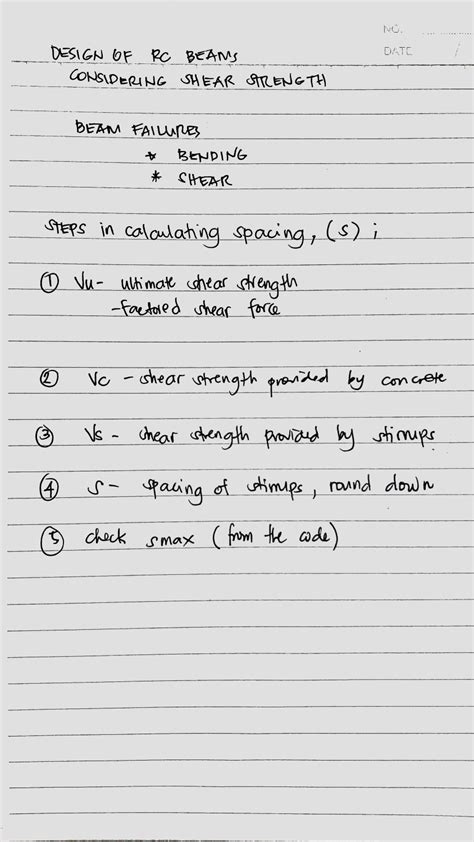 NO.
DATE /
DESIGN OF RC BEAMS
CONSIDERING SHEAR STRENGTH
BEAM FAILURES
* BENDING
* SHEAR
STEPS in calculating spacing, (s) ;
① Vu- ultimate shear strength
-factored shear force
② Vc - shear strength provided by concrete
③ Vs - shear strength provided by stirrups
④ s - spacing of stirrups, round down
⑤ check smax (from the code)